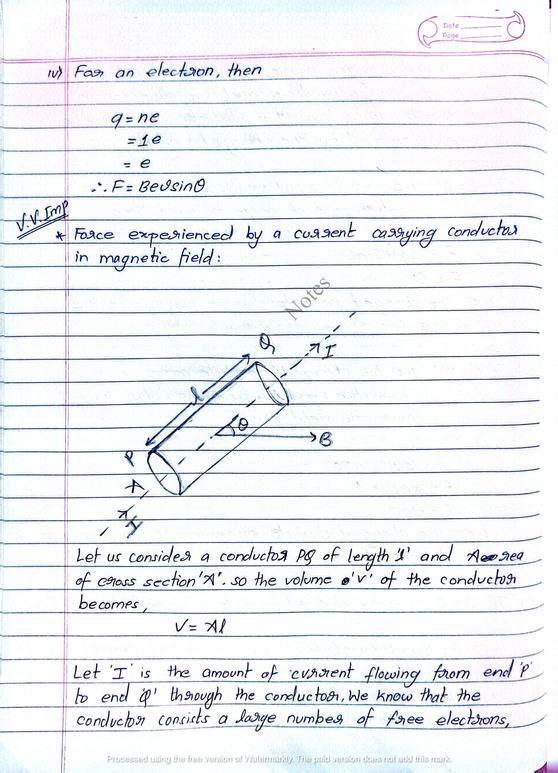 Date
Page
iv) For an electron, then
q = ne
= 1e
= e
∴ F = Bevsinθ
V.V.Imp
* Force experienced by a current carrying conductor
in magnetic field:
Notes
Q
I
l
θ
B
P
A
I
Let us consider a conductor PQ of length 'l' and Area
of cross section 'A'. so the volume 'v' of the conductor
becomes,
V = Al
Let 'I' is the amount of current flowing from end 'P'
to end 'Q' through the conductor. We know that the
conductor consists a large number of free electrons,
Processed using the free version of Watermarkly. The paid version does not add this mark.